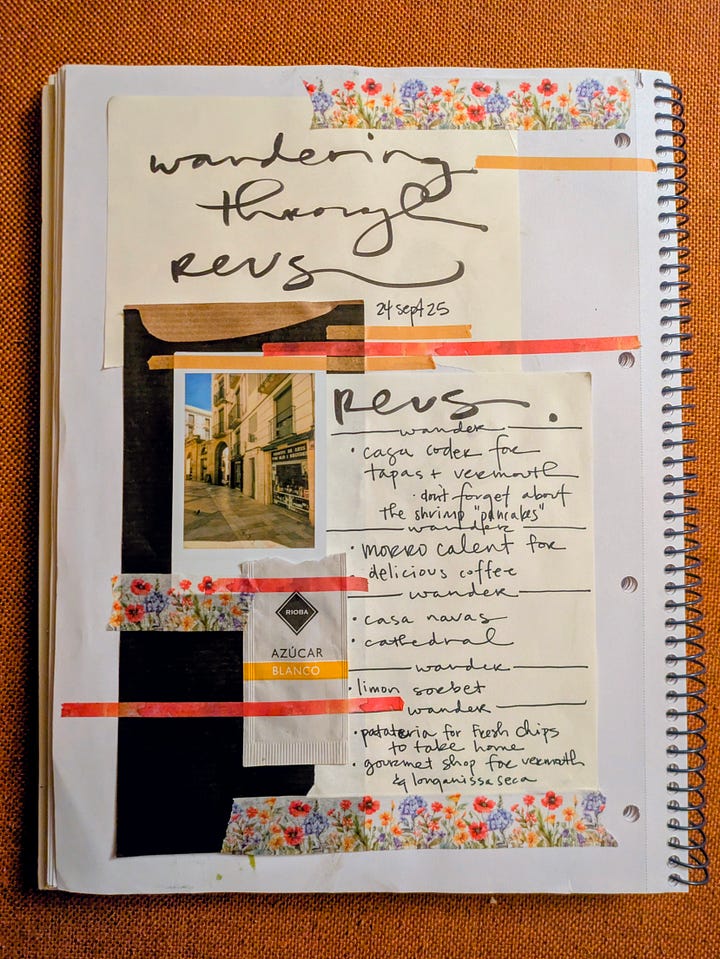 wandering
through
reus
24 sept 25
reus.
wander
• casa coder for
tapas + vermouth
• don't forget about
the shrimp "pancakes"
wander
• morro calent for
delicious coffee
wander
• casa navas
• cathedral
wander
• limon sorbet
wander
• patateria for fresh chips
to take home
• gourmet shop for vermouth
& longanissa seca
RIOBA
AZÚCAR
BLANCO